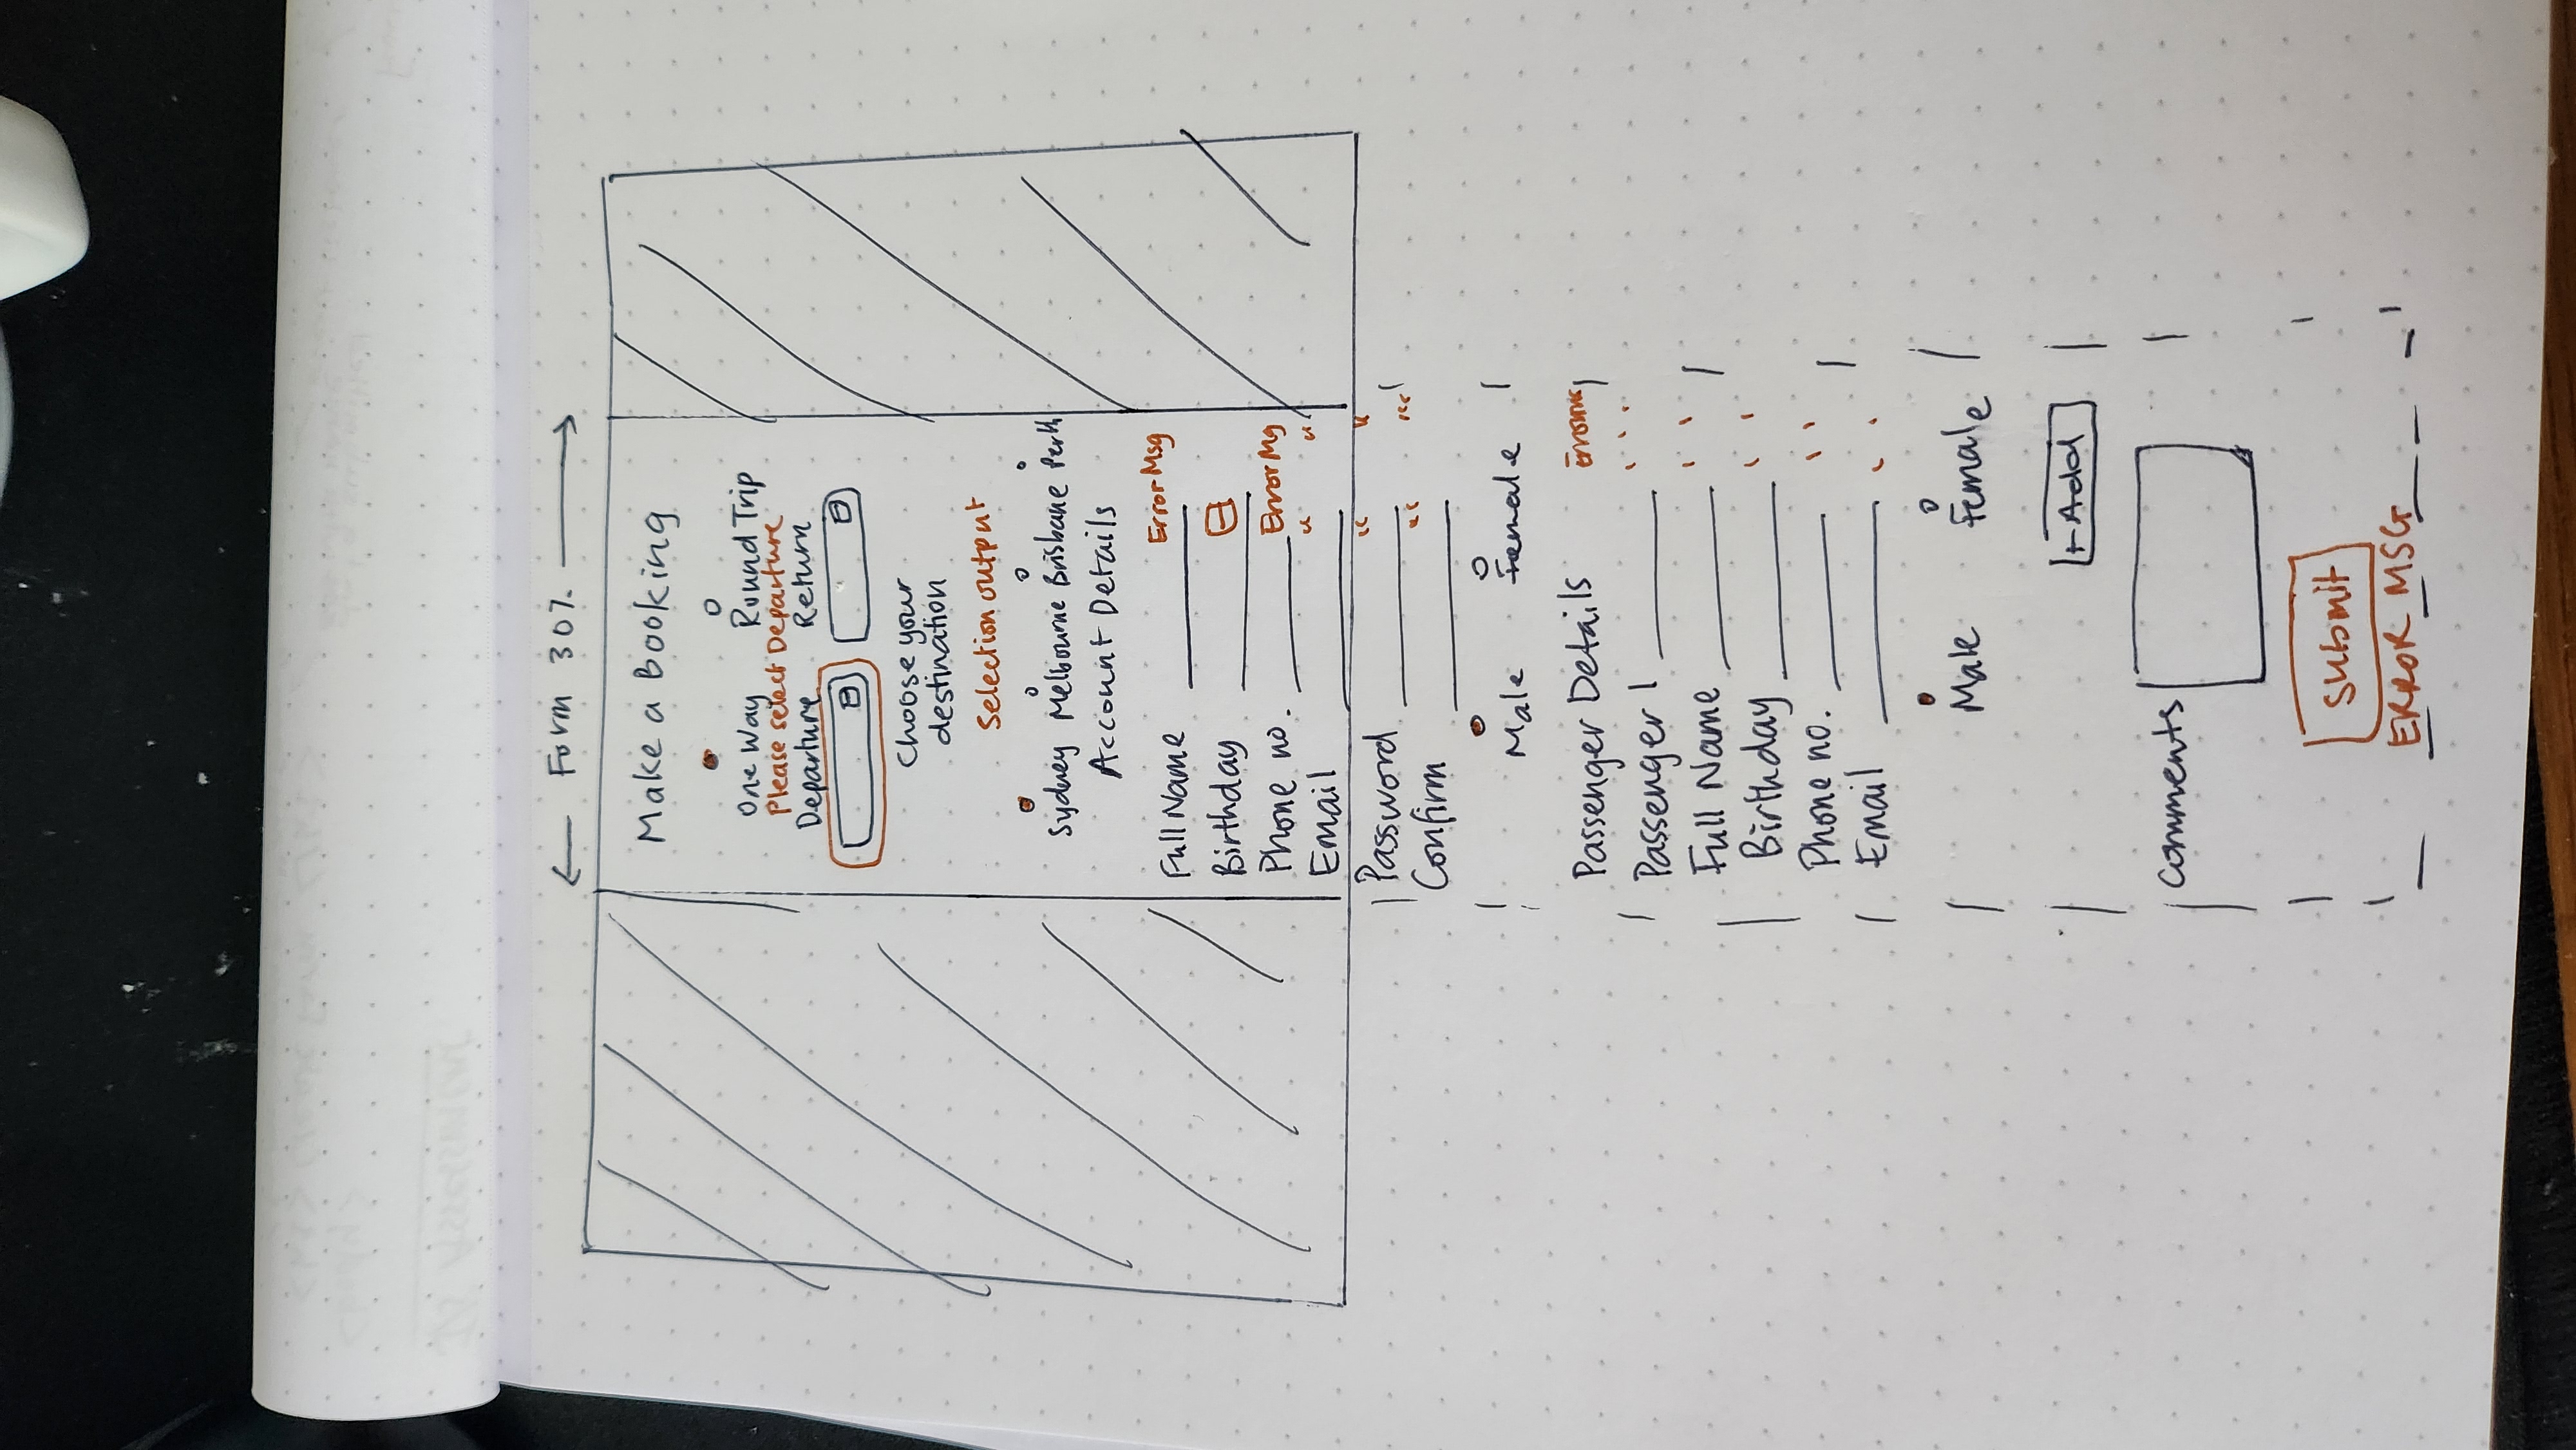 Form 30%
Make a Booking
One Way Round Trip
Please select Departure
Departure Return
Choose your
destination
Selection output
Sydney Melbourne Brisbane Perth
Account Details
Error Msg
Full Name
Birthday
Phone no. Error Mg
Email " "
Password " "
Confirm " "
Male Female
Passenger Details
Passenger 1
Full Name
Birthday
Phone no.
Email
Male Female
+ Add
Comments
Submit
ERROR MSG